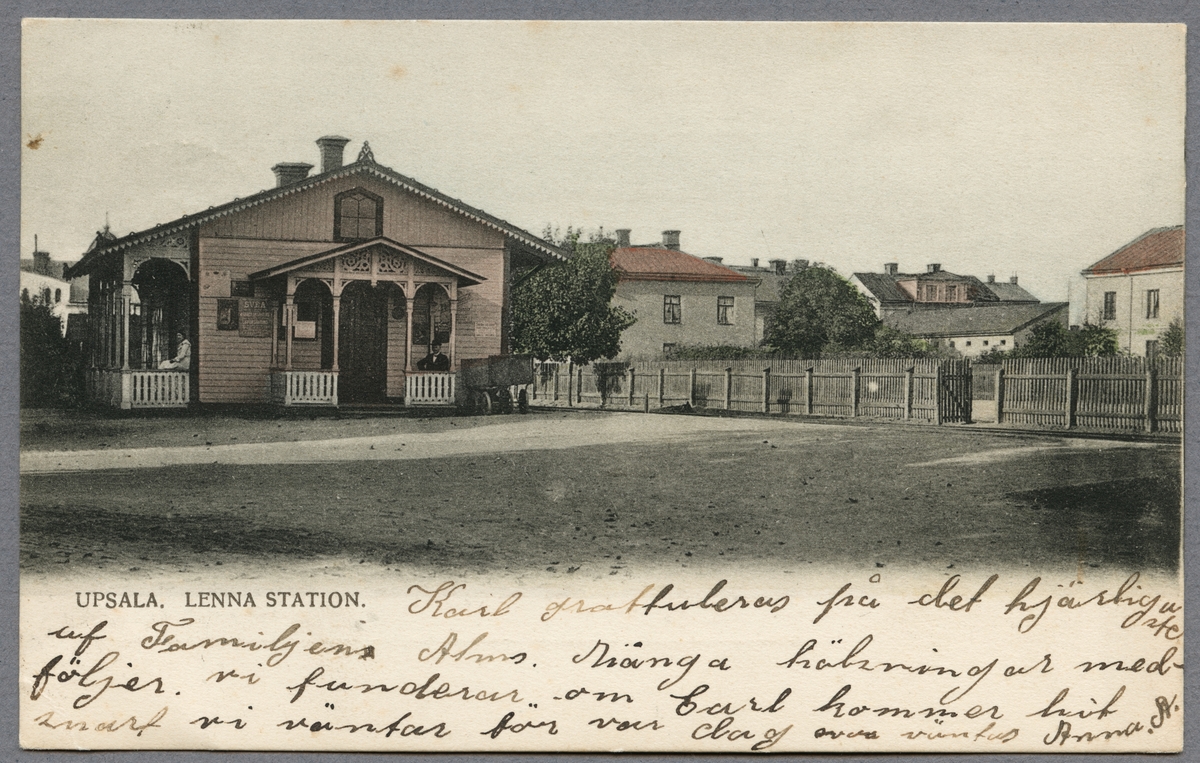 UPSALA. LENNA STATION.
Karl gratuleras på det hjärtligaste
af Familjens Alms. Många hälsningar med-
följer. vi funderar om Carl kommer hit
snart vi väntar för var dag väntas Anna. A.
SVEA